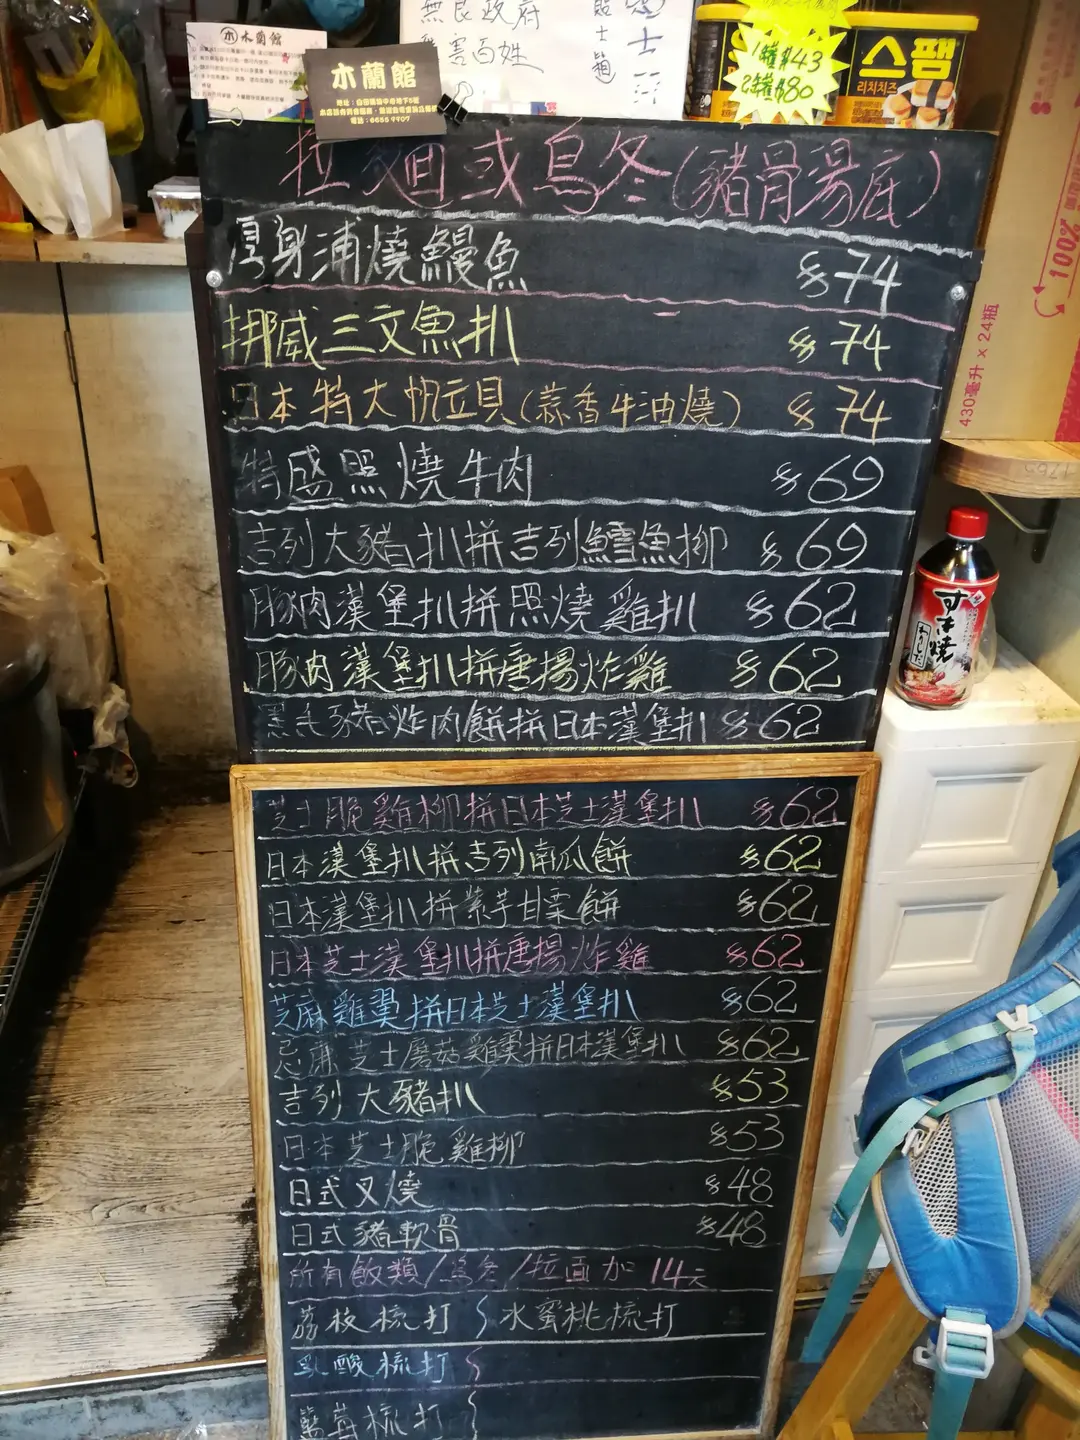 木蘭館
無良政府
害百姓
貼士箱
1罐$43
2罐$80
스팸
리치치즈
木蘭館
拉麵或烏冬(豬骨湯底)
厚身浦燒鰻魚 $74
挪威三文魚扒 $74
日本特大帆立貝(蒜香牛油燒) $74
特盛照燒牛肉 $69
吉列大豬扒拼吉列鱈魚柳 $69
豚肉漢堡扒拼照燒雞扒 $62
豚肉漢堡扒拼唐揚炸雞 $62
黑毛豬炸肉餅拼日本漢堡扒 $62
芝士脆雞柳拼日本芝士漢堡扒 $62
日本漢堡扒拼吉列南瓜餅 $62
日本漢堡扒拼紫芋甘栗餅 $62
日本芝士漢堡扒拼唐揚炸雞 $62
芝麻雞翼拼日本芝士漢堡扒 $62
忌廉芝士蘑菇雞翼拼日本漢堡扒 $62
吉列大豬扒 $53
日本芝士脆雞柳 $53
日式叉燒 $48
日式豬軟骨 $48
所有飯類/烏冬/拉面加14元
荔枝梳打 水蜜桃梳打
乳酸梳打
藍莓梳打
430毫升 x 24瓶
100%
すき焼
わりした